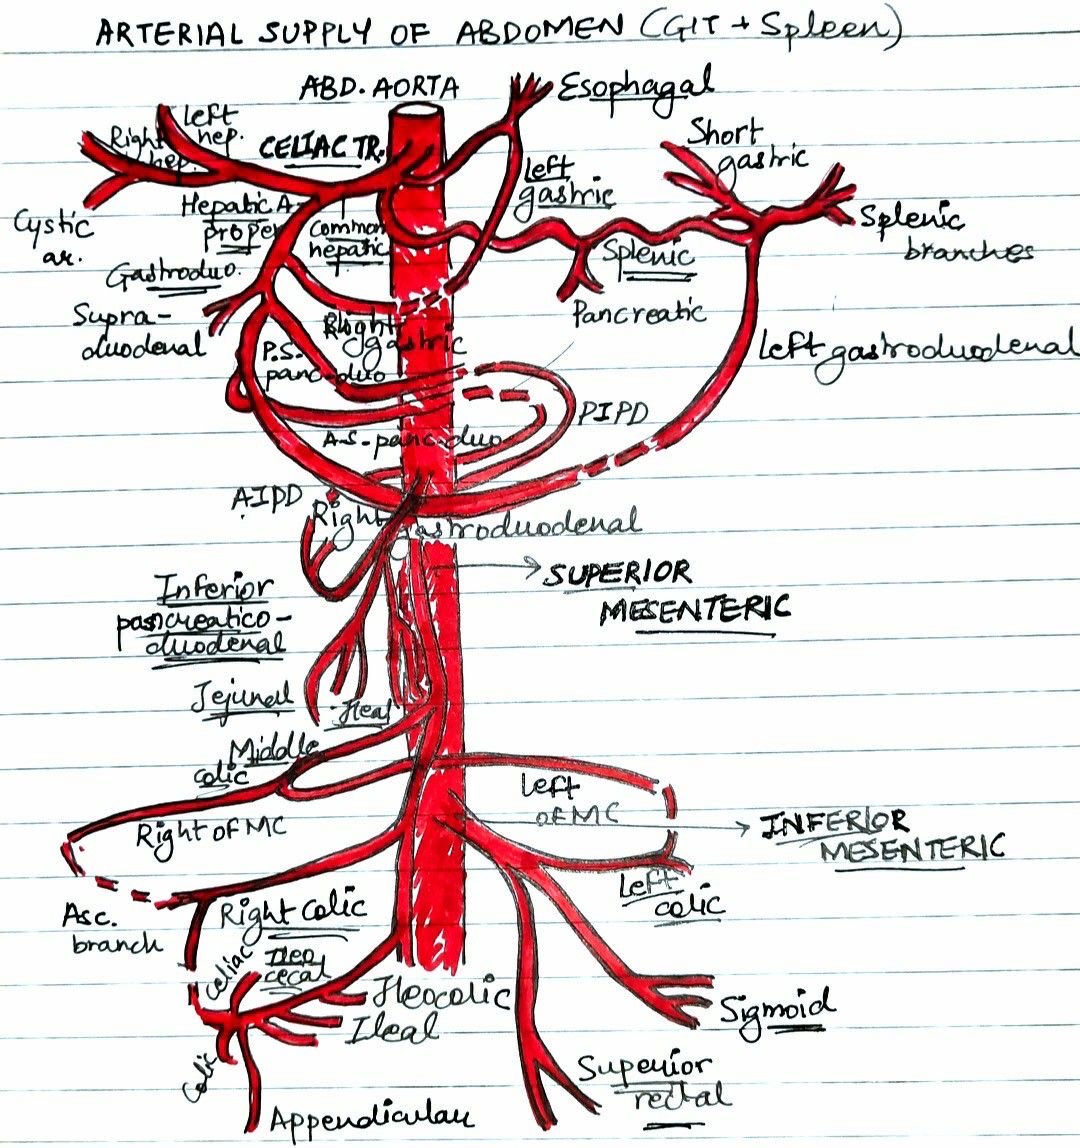 ARTERIAL SUPPLY OF ABDOMEN (GIT + Spleen)
ABD. AORTA
Esophagal
Left
hep.
Right
hep.
CELIAC TR.
Short
gastric
Left
gastric
Cystic
ar.
Hepatic A
proper
Common
hepatic
Splenic
branches
Splenic
Gastroduo.
Pancreatic
Supra-
duodenal
Right
gastric
P.S.
panc-duo
Left gastroduodenal
PIPD
A-S-panc-duo
AIPD
Right gastroduodenal
SUPERIOR
MESENTERIC
Inferior
pancreatico-
duodenal
Jejunal
Ileal
Middle
colic
Left
of MC
Right of MC
INFERIOR
MESENTERIC
Left
colic
Asc.
branch
Right Colic
Celiac
Ileo
cecal
Ileocolic
Ileal
Sigmoid
Colic
Superior
rectal
Appendicular